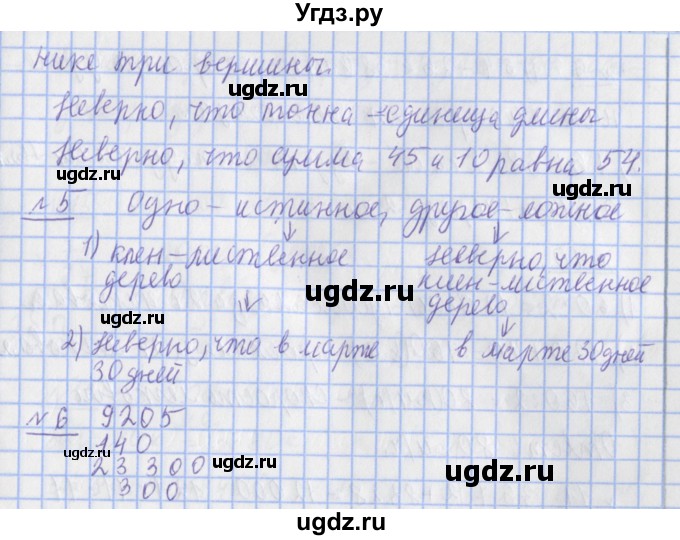 Угдз.ру
нике три вершины.
Неверно, что тонна - единица длины.
Неверно, что сумма 45 и 10 равна 54.
№5 Одно - истинное, другое - ложное
1) клен - лиственное дерево
Неверно, что клен - лиственное дерево
2) Неверно, что в марте 30 дней
в марте 30 дней
№6 9205
140
23 300
300
ugdz.ru
ugdz.ru
ugdz.ru
ugdz.ru
ugdz.ru
ugdz.ru
ugdz.ru
ugdz.ru
ugdz.ru
ugdz.ru
ugdz.ru
ugdz.ru